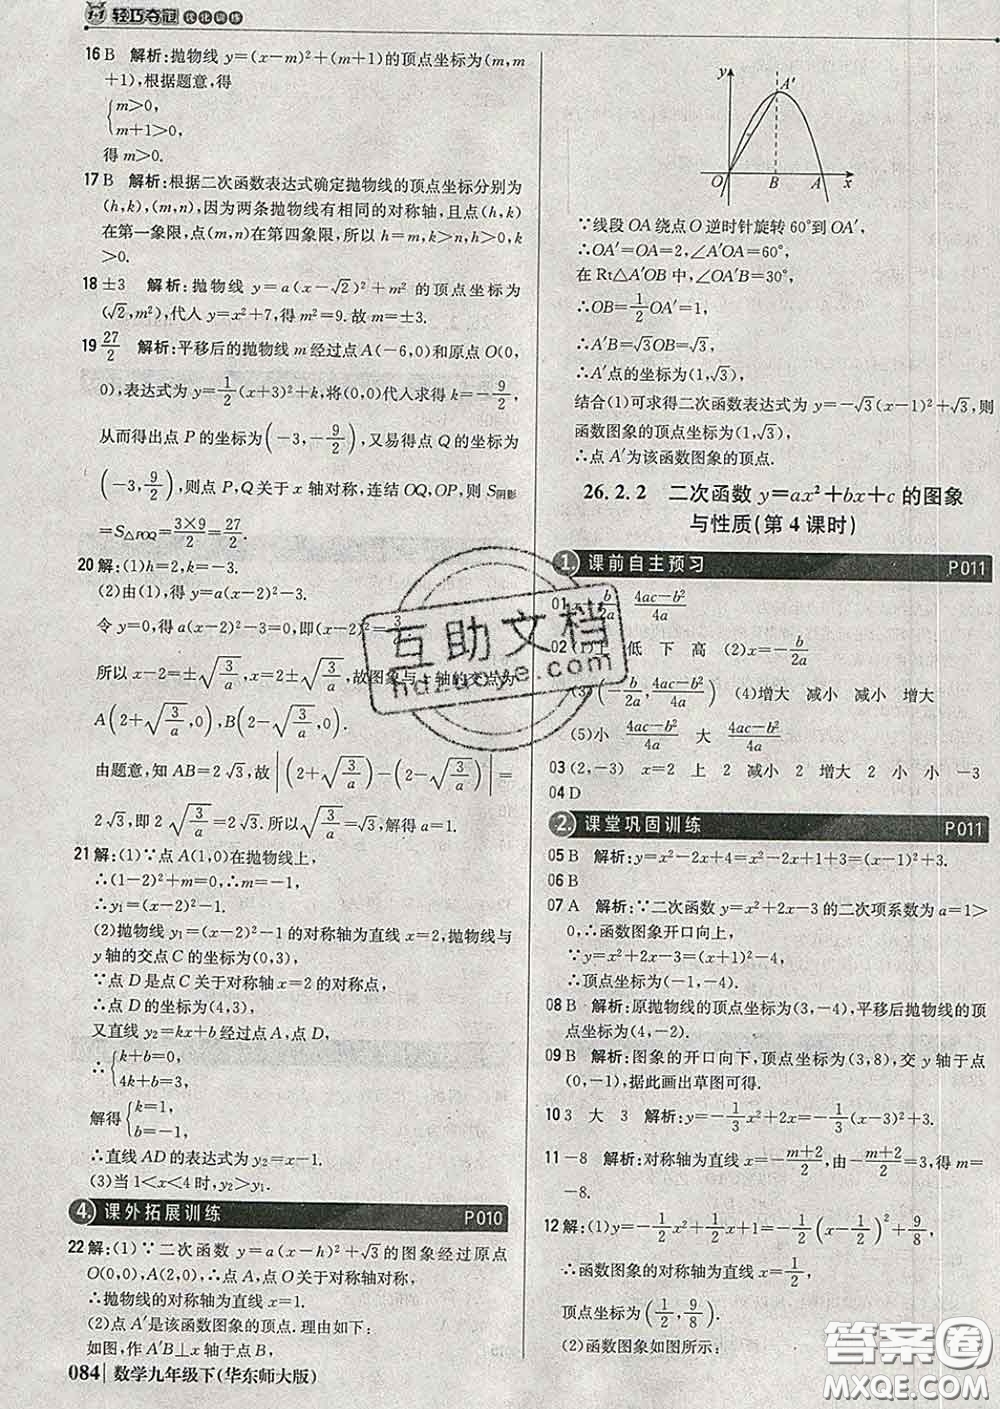 1+1 轻巧夺冠 优化训练
16 B 解析:抛物线 y=(x-m)²+(m+1)的顶点坐标为(m,m
+1),根据题意,得
{m>0,
m+1>0,
得 m>0.
17 B 解析:根据二次函数表达式确定抛物线的顶点坐标分别为
(h,k),(m,n),因为两条抛物线有相同的对称轴,且点(h,k)
在第一象限,点(m,n)在第四象限,所以 h=m,k>n,h>0,k
>0.
18 ±3 解析:抛物线 y=a(x-√2)²+m² 的顶点坐标为
(√2,m²),代入 y=x²+7,得 m²=9.故 m=±3.
19 27/2 解析:平移后的抛物线 m 经过点 A(-6,0)和原点 O(0,
0),表达式为 y=1/2(x+3)²+k,将(0,0)代入求得 k=-9/2,
从而得出点 P 的坐标为(-3,-9/2),又易得点 Q 的坐标为
(-3,9/2),则点 P,Q 关于 x 轴对称,连结 OQ,OP,则 S阴影
=S△POQ=3×9/2=27/2.
20 解:(1)h=2,k=-3.
(2)由(1),得 y=a(x-2)²-3.
令 y=0,得 a(x-2)²-3=0,即(x-2)²=3/a
所以 x-2=±√(3/a),x=2±√(3/a),故图象与 x 轴的交点为
A(2+√(3/a),0),B(2-√(3/a),0).
由题意,知 AB=2√3,故|(2+√(3/a))-(2-√(3/a))|=
2√3,即 2√(3/a)=2√3.所以√(3/a)=√3,解得 a=1.
21 解:(1)∵点 A(1,0)在抛物线上,
∴(1-2)²+m=0,∴m=-1.
∴y₁=(x-2)²-1.
(2)抛物线 y₁=(x-2)²-1 的对称轴为直线 x=2,抛物线与
y 轴的交点 C 的坐标为(0,3),
∵点 D 是点 C 关于对称轴 x=2 的对称点,
∴点 D 的坐标为(4,3),
又直线 y₂=kx+b 经过点 A,点 D,
∴{k+b=0,
4k+b=3,
解得{k=1,
b=-1,
∴直线 AD 的表达式为 y₂=x-1.
(3)当 1<x<4 时,y₂>y₁.
4. 课外拓展训练 P010
22 解:(1)∵二次函数 y=a(x-h)²+√3的图象经过原点
O(0,0),A(2,0),∴点 A,点 O 关于对称轴对称,
∴抛物线的对称轴为直线 x=1.
(2)点 A′是该函数图象的顶点.理由如下:
如图,作 A′B⊥x 轴于点 B,
084 数学九年级下(华东师大版)
y A′
O B A x
∵线段 OA 绕点 O 逆时针旋转 60°到 OA′,
∴OA′=OA=2,∠A′OA=60°,
在 Rt△A′OB 中,∠OA′B=30°,
∴OB=1/2OA′=1,
∴A′B=√3OB=√3,
∴A′点的坐标为(1,√3),
结合(1)可求得二次函数表达式为 y=-√3(x-1)²+√3,则
函数图象的顶点坐标为(1,√3),
∴点 A′为该函数图象的顶点.
26.2.2 二次函数 y=ax²+bx+c 的图象
与性质(第 4 课时)
1. 课前自主预习 P011
01 -b/2a (4ac-b²)/4a
02 (1)上 低 下 高 (2)x=-b/2a
(3)(-b/2a,(4ac-b²)/4a) (4)增大 减小 减小 增大
(5)小 (4ac-b²)/4a 大 (4ac-b²)/4a
03 (2,-3) x=2 上 2 减小 2 增大 2 小 小 -3
04 D
2. 课堂巩固训练 P011
05 B 解析:y=x²-2x+4=x²-2x+1+3=(x-1)²+3.
06 B
07 A 解析:∵二次函数 y=x²+2x-3 的二次项系数为 a=1>
0,∴函数图象开口向上,
∵y=x²+2x-3=(x+1)²-4,
∴顶点坐标为(-1,-4).
08 B 解析:原抛物线的顶点坐标为(3,-4),平移后抛物线的顶
点坐标为(4,-2).
09 B 解析:图象的开口向下,顶点坐标为(3,8),交 y 轴于点
(0,-1),据此画出草图可得.
10 3 大 3 解析:y=-1/3x²+2x=-1/3(x-3)²+3.
11 -8 解析:对称轴为直线 x=-(m+2)/2,由-(m+2)/2=3,得 m=
-8.
12 解:(1)y=-1/2x²+1/2x+1=-1/2(x-1/2)²+9/8,
∴函数图象的对称轴为直线 x=1/2,
顶点坐标为(1/2,9/8).
(2)函数图象如图所示:
互助文档
hdzuoye.com
答案圈
MXQE.COM